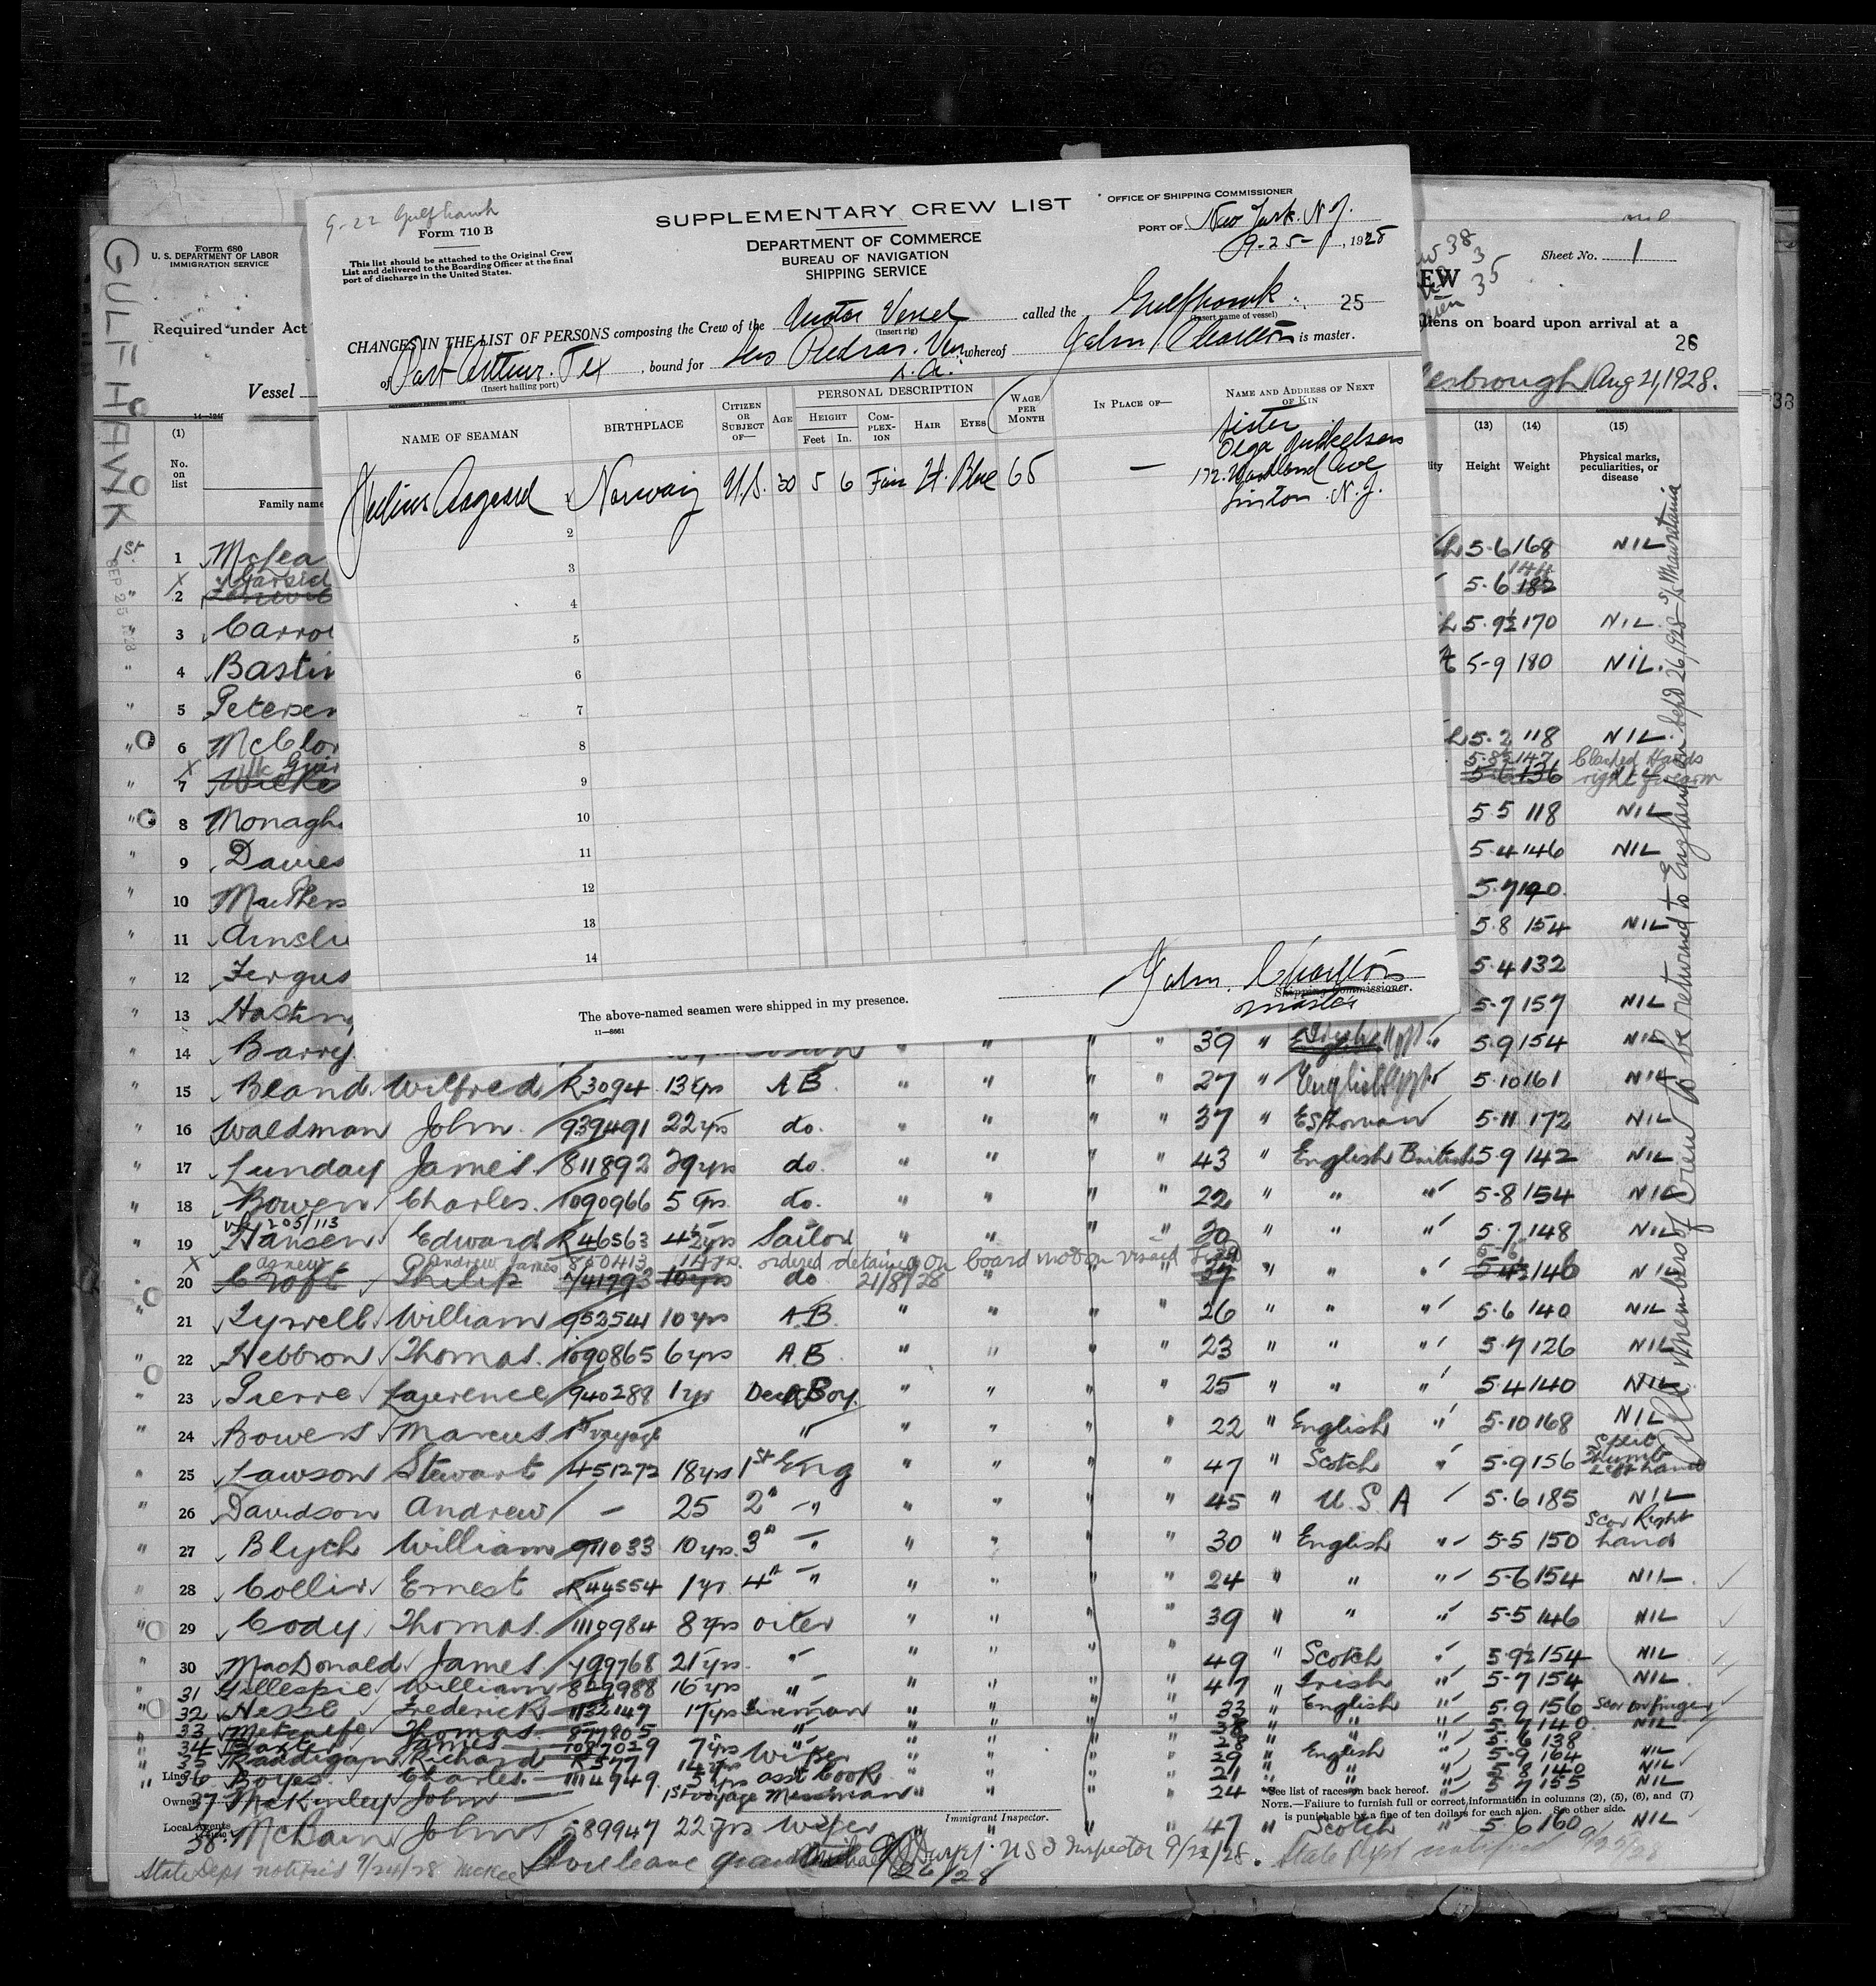 9-22 Gulfhawk
Form 710 B
This list should be attached to the Original Crew
List and delivered to the Boarding Officer at the final
port of discharge in the United States.
SUPPLEMENTARY CREW LIST
DEPARTMENT OF COMMERCE
BUREAU OF NAVIGATION
SHIPPING SERVICE
OFFICE OF SHIPPING COMMISSIONER
PORT OF New York. N.J.
9-25-, 1928
CHANGES IN THE LIST OF PERSONS composing the Crew of the Motor Vessel called the Gulfhawk. 25
(Insert rig) (Insert name of vessel)
of Port Arthur. Tex, bound for Las Piedras. Ven. whereof John Charlton is master.
(Insert hailing port) S.A.
NAME OF SEAMAN BIRTHPLACE CITIZEN OR SUBJECT OF— AGE PERSONAL DESCRIPTION HEIGHT Feet In. COMPLEXION HAIR EYES WAGE PER MONTH IN PLACE OF— NAME AND ADDRESS OF NEXT OF KIN
Julius Aagaard 1 Norway U.S. 30 5 6 Fair Lt. Blue 65 — Sister
Olga
172 Woodland Ave
N.J.
2
3
4
5
6
7
8
9
10
11
12
13
14
The above-named seamen were shipped in my presence.
John. Charlton
Shipping Commissioner.
master
11—8661
GULFHAWK
SEP 25 1928
Form 680
U. S. DEPARTMENT OF LABOR
IMMIGRATION SERVICE
Required under Act
Vessel
EW
Sheet No. 1
38
3
35
liens on board upon arrival at a
26
esbrough Aug 21, 1928.
38
(1) (13) (14) (15)
No. on list Family name Height Weight Physical marks, peculiarities, or disease
1st 1 5-6 168 NIL
X Garsid 144
" 2 5-6 182
" 3 Carrol 5-9½ 170 NIL.
" 4 Bastin 5-9 180 NIL.
" 5 Petersen
" 6 McClor 5-2 118 NIL.
X 5-8½ 147 Clasped Hands
" 7 5-6 136 right forearm
" 8 Monagh 5 5 118 NIL
" 9 Davies 5-4 146 NIL
" 10 MacPhers 5-7 190.
" 11 Ainsli 5-8 154 NIL
" 12 Fergus 5-4 132
" 13 Hasting 5-7 157 NIL
" 14 Barry 39 " 5-9 154 NIL
" 15 Bland Wilfred R3094 13 yrs AB " " " " 27 " English 5-10 161 NIL
" 16 Waldman John. 939491 22 yrs do. " " " " 37 " Esthonian 5-11 172 NIL
" 17 Lunday James. 811892 29 yrs do. " " " " 43 " English British 5-9 142 NIL
" 18 Bowen Charles. 1090966 5 yrs. do. " " " " 22 " " " 5-8 154 NIL
" 19 Hansen Edward R46563 4½ yrs Sailor " " " " 20 " " " 5-7 148 NIL
X Agnew Andrew James 850413 14 yrs. ordered detained on board motor vessel
20 Croft Philip 741793 10 yrs do 21/8/28 " " " 37 " " " 5-4½ 146 NIL
" 21 Tyrrell William 952541 10 yrs A.B. " " " " 26 " " " 5-6 140 NIL
" 22 Hebbron Thomas. 1090865 6 yrs A.B. " " " " 23 " " " 5-7 126 NIL
" 23 Pierre Laurence 940288 1 yr Deck Boy. " " " " 25 " " " 5-4 140 NIL
" 24 Bowers Marcus 1st voyage " " " " " 22 " English " 5-10 168 NIL
" 25 Lawson Stewart 451272 18 yrs 1st Eng " " " " 47 " Scotch " 5-9 156 Split Thumb Left hand
" 26 Davidson Andrew — 25 2n " " " " " 45 " U.S.A 5-6 185 NIL
" 27 Blyth William 911033 10 yrs. 3n " " " " " 30 " English " 5-5 150 Scar Right hand
" 28 Collin Ernest R44554 1 yr. 4n " " " " " 24 " " " 5-6 154 NIL
" 29 Cody Thomas. 1110984 8 yrs oiler " " " " 39 " " " 5-5 146 NIL
" 30 MacDonald James 799768 21 yrs. " " " " " 49 " Scotch " 5-9½ 154 NIL
31 Gillespie William 829988 16 yrs " " " " " 47 " Irish " 5-7 154 NIL
" 32 Hessl Frederick 1132147 17 yrs Fireman " " " " 33 " English " 5-9 156 Scar on finger
33 Metcalfe Thomas 877805 " " " " " 38 " " " 5-7 140 NIL
34 Baxter James 1087029 7 yrs " " " " " 28 " " " 5-6 138
35 Raadigan Richard R577 14 yrs Wiper " " " " 29 " English " 5-9 164 NIL
" 36 Boyes. Charles. 1114949. 5 yrs asst Cook " " " " 21 " " " 5-8 140 NIL
37 McKinley John — 1st voyage Messman " " " " 24 5-7 155 NIL
38. McBain John 589947 22 yrs Wiper " " 47 " Scotch " 5-6 160 NIL
Line
Owners
Local Agents
Immigrant Inspector.
*See list of races on back hereof.
NOTE.—Failure to furnish full or correct information in columns (2), (5), (6), and (7)
is punishable by a fine of ten dollars for each alien. See other side.
State Dept notified 9/24/28 McKee
Shore leave granted Michael J. Dwyer. U S I Inspector 9/22/28. State Dept notified 9/25/28
9/26/28
All members of crew to be returned to England on Sept 26, 1928 S/S Mauretania